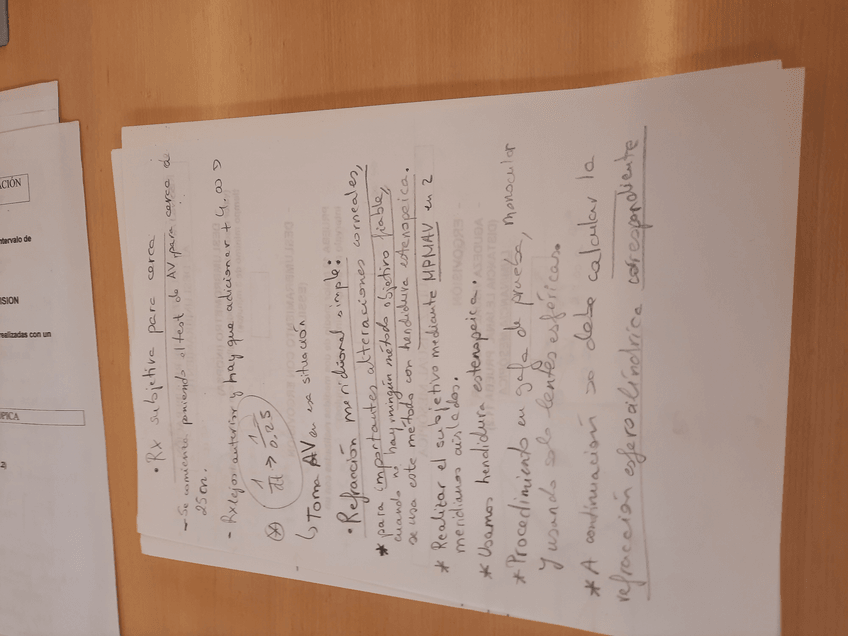 • Rx subjetiva para cerca
- Se comienza poniendo el test de AV para cerca a
25cm.
- Rx lejos anterior y hay que adicionar +4.00 D
* 1/d → 1/0.25
↳ Toma AV en esa situación
• Refracción meridional simple:
* para importantes alteraciones corneales,
cuando no hay ningún método objetivo fiable,
se usa este método con hendidura estenopeica.
* Realizar el subjetivo mediante MPMAV en 2
meridianos aislados.
* Usamos hendidura estenopeica.
* Procedimiento en gafa de prueba, monocular
y usando solo lentes esféricas.
* A continuación se debe calcular la
refracción esferocilíndrica correspondiente
ACIÓN
ntervalo de
ISION
realizadas con un
PICA